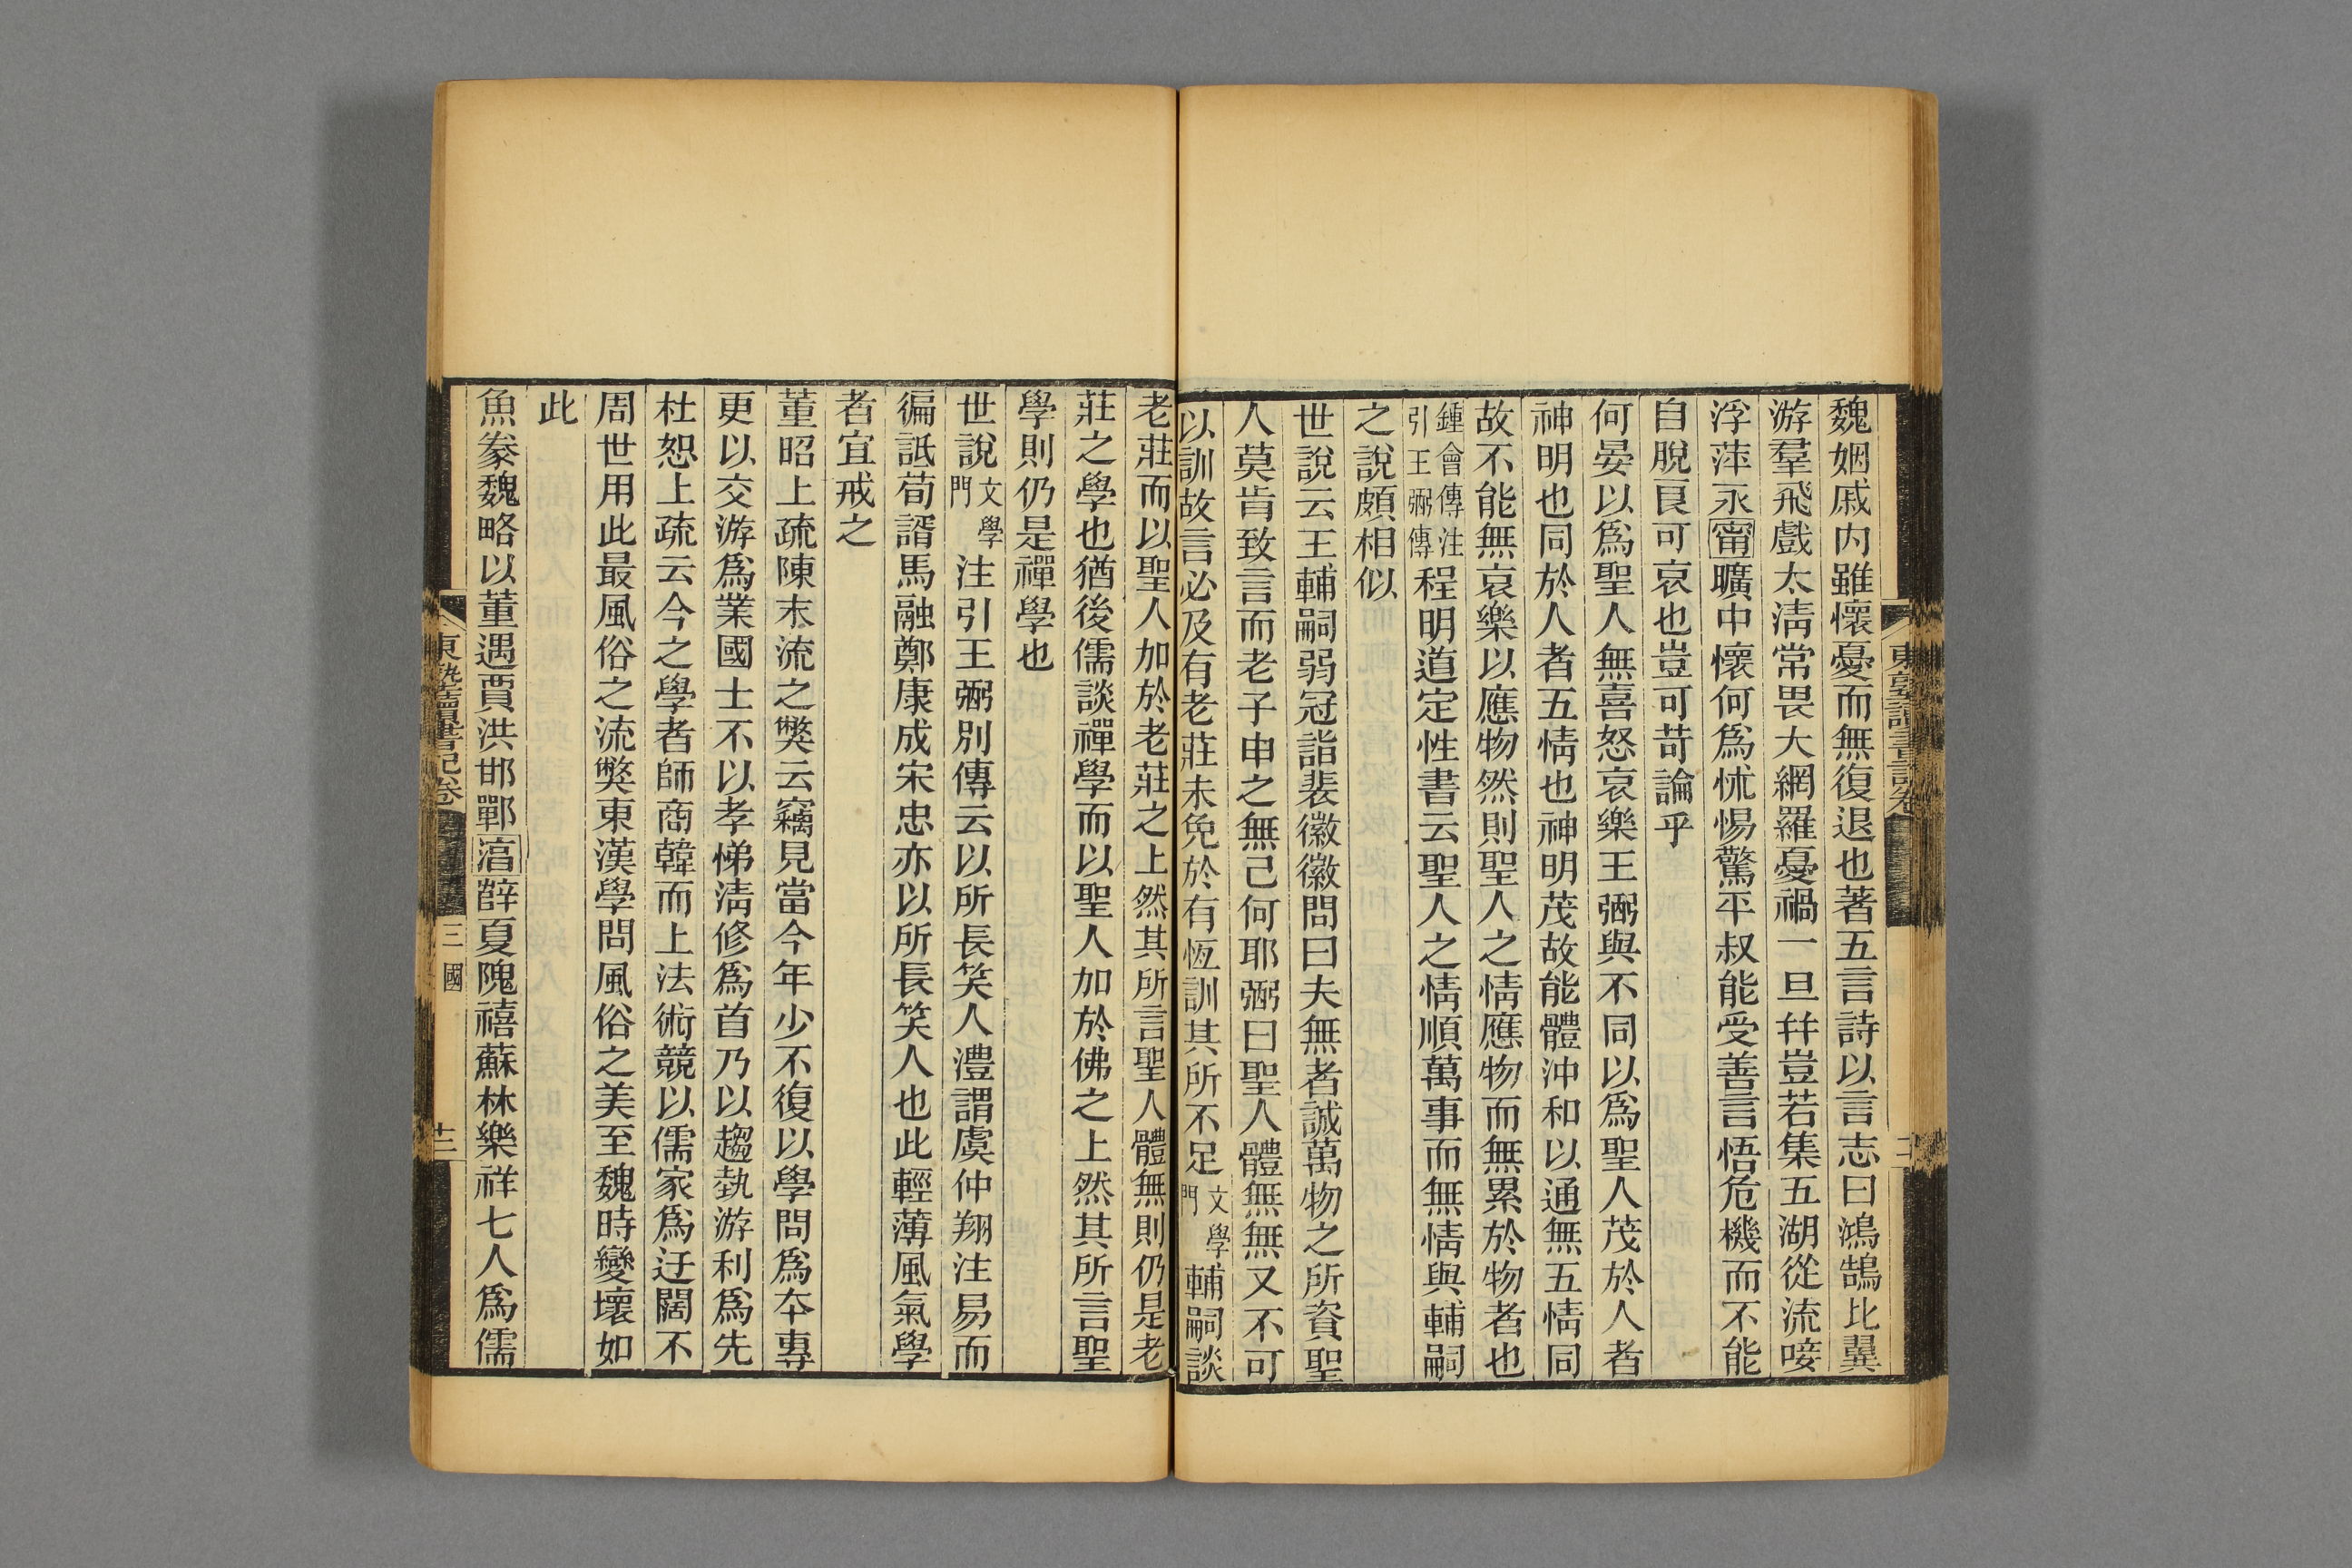 魏姻戚内雖懷憂而無復退也著五言詩以言志曰鴻鵠比翼
游羣飛戲太淸常畏大網羅憂禍一旦幷豈若集五湖從流唼
浮萍永甯曠中懷何爲怵惕驚平叔能受善言悟危機而不能
自脫良可哀也豈可苛論乎
何晏以爲聖人無喜怒哀樂王弼與不同以爲聖人茂於人者
神明也同於人者五情也神明茂故能體沖和以通無五情同
故不能無哀樂以應物然則聖人之情應物而無累於物者也
鍾會傳注引王弼傳程明道定性書云聖人之情順萬事而無情與輔嗣
之說頗相似
世說云王輔嗣弱冠詣裴徽徽問曰夫無者誠萬物之所資聖
人莫肯致言而老子申之無己何耶弼曰聖人體無無又不可
以訓故言必及有老莊未免於有恆訓其所不足文學門輔嗣談
老莊而以聖人加於老莊之上然其所言聖人體無則仍是老
莊之學也猶後儒談禪學而以聖人加於佛之上然其所言聖
學則仍是禪學也
世說文學門注引王弼別傳云以所長笑人澧謂虞仲翔注易而
徧詆荀諝馬融鄭康成宋忠亦以所長笑人也此輕薄風氣學
者宜戒之
董昭上疏陳末流之獘云竊見當今年少不復以學問爲本專
更以交游爲業國士不以孝悌淸修爲首乃以趨埶游利爲先
杜恕上疏云今之學者師商韓而上法術競以儒家爲迂闊不
周世用此最風俗之流獘東漢學問風俗之美至魏時變壞如
此
魚豢魏略以董遇賈洪邯鄲淳薛夏隗禧蘇林樂祥七人爲儒
東塾讀書記卷
三國